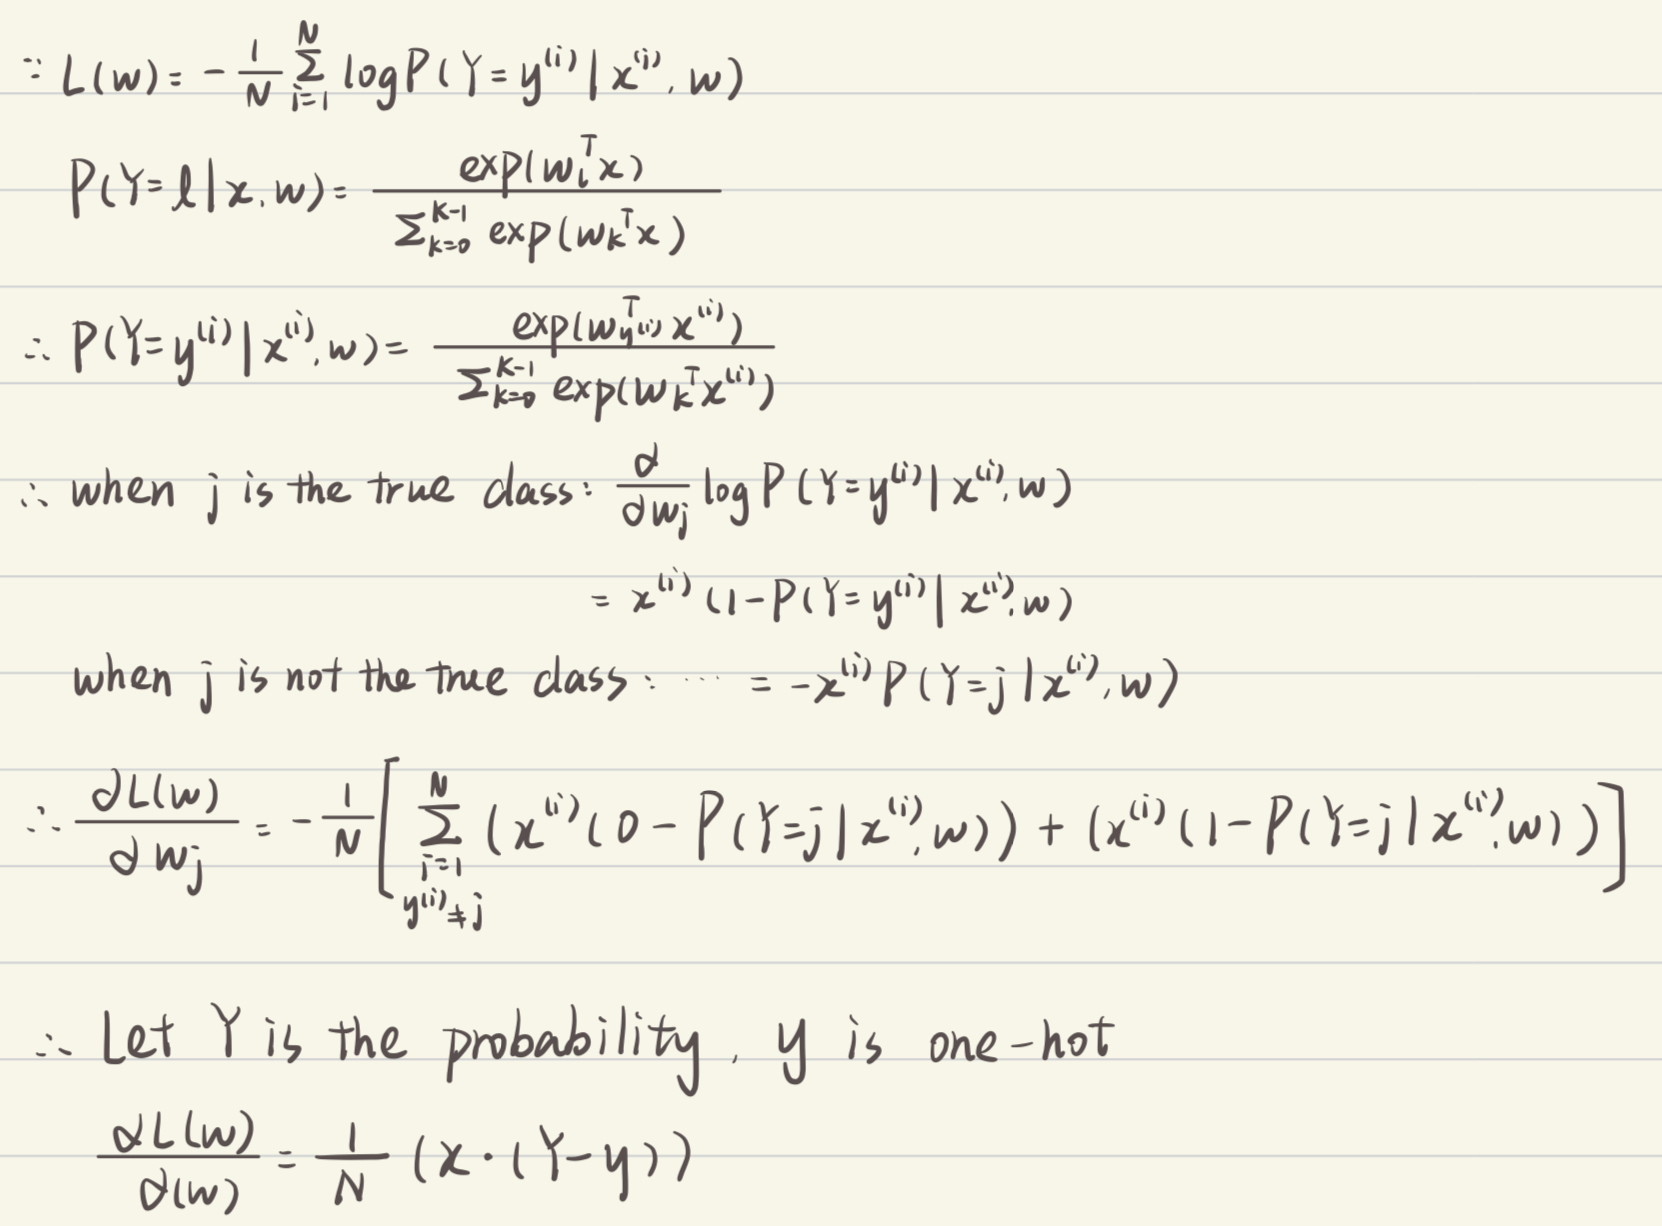 ∵ L(w) = - 1/N Σ_{i=1}^{N} log P(Y = y^{(i)} | x^{(i)}, w)
P(Y = l | x, w) = exp(w_l^T x) / Σ_{k=0}^{K-1} exp(w_k^T x)
∴ P(Y = y^{(i)} | x^{(i)}, w) = exp(w_{y^{(i)}}^T x^{(i)}) / Σ_{k=0}^{K-1} exp(w_k^T x^{(i)})
∴ when j is the true class: ∂/∂w_j log P(Y = y^{(i)} | x^{(i)}, w)
= x^{(i)} (1 - P(Y = y^{(i)} | x^{(i)}, w)
when j is not the true class: ... = -x^{(i)} P(Y = j | x^{(i)}, w)
∴ ∂L(w)/∂w_j = - 1/N [ Σ_{i=1, y^{(i)} ≠ j}^{N} (x^{(i)} (0 - P(Y = j | x^{(i)}, w)) + (x^{(i)} (1 - P(Y = j | x^{(i)}, w)) ]
∴ Let Y is the probability, y is one-hot
∂L(w)/∂(w) = 1/N (x · (Y - y))